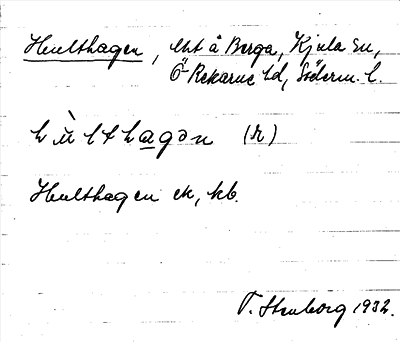 Hulthagen, lht å Berga, Kjula sn,
Ö Rekarne hd, Söderm. l.
hùlthagən (r)
Hulthagen ek, kb.
T. Stenborg 1932.